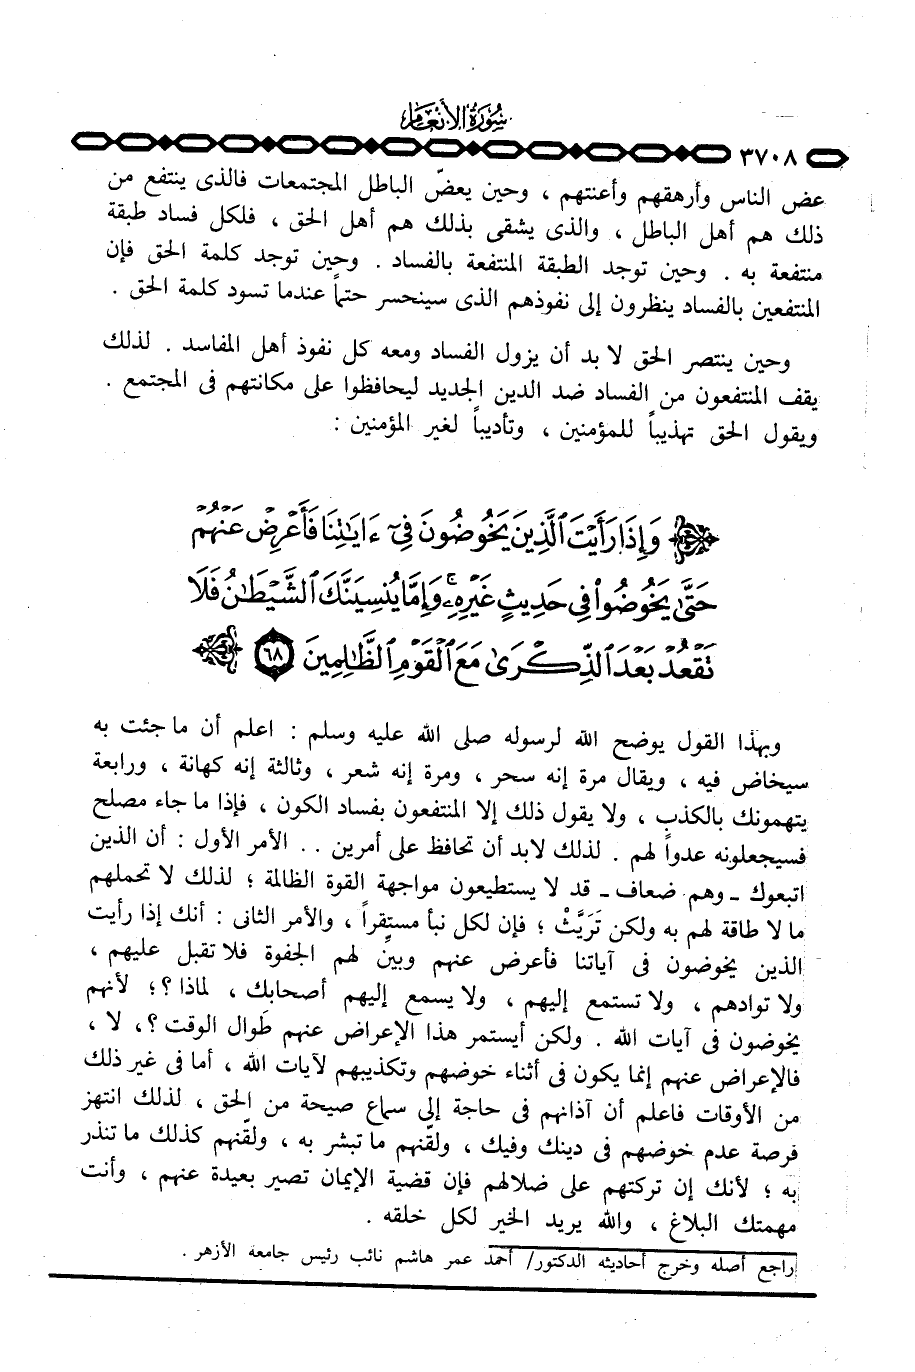 سُورَةُ الأَنْعَام
٣٧٠٨
عض الناس وأرهقهم وأعنتهم ، وحين يعضّ الباطل المجتمعات فالذى ينتفع من
ذلك هم أهل الباطل ، والذى يشقى بذلك هم أهل الحق ، فلكل فساد طبقة
منتفعة به . وحين توجد الطبقة المنتفعة بالفساد . وحين توجد كلمة الحق فإن
المنتفعين بالفساد ينظرون إلى نفوذهم الذى سينحسر حتماً عندما تسود كلمة الحق .
وحين ينتصر الحق لا بد أن يزول الفساد ومعه كل نفوذ أهل المفاسد . لذلك
يقف المنتفعون من الفساد ضد الدين الجديد ليحافظوا على مكانتهم فى المجتمع .
ويقول الحق تهذيباً للمؤمنين ، وتأديباً لغير المؤمنين :
وَإِذَا رَأَيْتَ ٱلَّذِينَ يَخُوضُونَ فِىٓ ءَايَٰتِنَا فَأَعْرِضْ عَنْهُمْ
حَتَّىٰ يَخُوضُوا۟ فِى حَدِيثٍ غَيْرِهِۦ ۚ وَإِمَّا يُنسِيَنَّكَ ٱلشَّيْطَٰنُ فَلَا
تَقْعُدْ بَعْدَ ٱلذِّكْرَىٰ مَعَ ٱلْقَوْمِ ٱلظَّٰلِمِينَ ٦٨
وبهذا القول يوضح الله لرسوله صلى الله عليه وسلم : اعلم أن ما جئت به
سيخاض فيه ، ويقال مرة إنه سحر ، ومرة إنه شعر ، وثالثة إنه كهانة ، ورابعة
يتهمونك بالكذب ، ولا يقول ذلك إلا المنتفعون بفساد الكون ، فإذا ما جاء مصلح
فسيجعلونه عدواً لهم . لذلك لابد أن تحافظ على أمرين . . الأمر الأول : أن الذين
اتبعوك ـ وهم ضعاف ـ قد لا يستطيعون مواجهة القوة الظالمة ؛ لذلك لا تحملهم
ما لا طاقة لهم به ولكن تَرَيَّثْ ؛ فإن لكل نبأ مستقراً ، والأمر الثانى : أنك إذا رأيت
الذين يخوضون فى آياتنا فأعرض عنهم وبينِّ لهم الجفوة فلا تقبل عليهم ،
ولا توادهم ، ولا تستمع إليهم ، ولا يسمع إليهم أصحابك ، لماذا ؟؛ لأنهم
يخوضون فى آيات الله . ولكن أيستمر هذا الإعراض عنهم طَوال الوقت ؟، لا ،
فالإعراض عنهم إنما يكون فى أثناء خوضهم وتكذيبهم لآيات الله ، أما فى غير ذلك
من الأوقات فاعلم أن آذانهم فى حاجة إلى سماع صيحة من الحق ، لذلك انتهز
فرصة عدم خوضهم فى دينك وفيك ، ولقّنهم ما تبشر به ، ولقّنهم كذلك ما تنذر
به ؛ لأنك إن تركتهم على ضلالهم فإن قضية الإيمان تصير بعيدة عنهم ، وأنت
مهمتك البلاغ ، والله يريد الخير لكل خلقه .
راجع أصله وخرج أحاديثه الدكتور/ أحمد عمر هاشم نائب رئيس جامعة الأزهر .